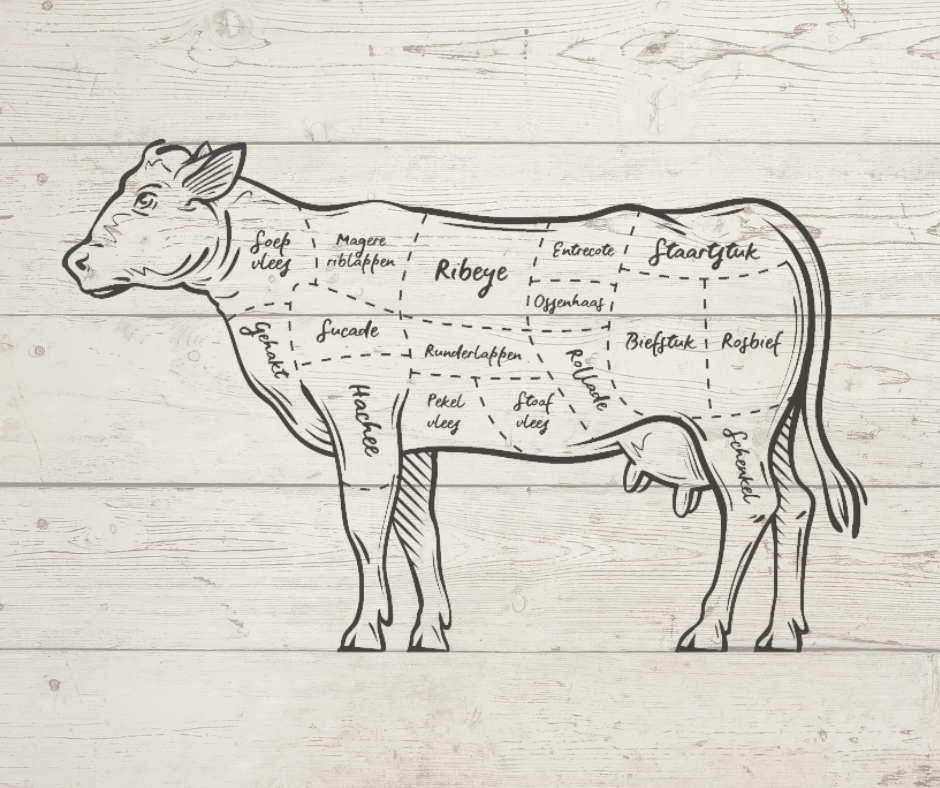 Soep
vlees
Magere
riblappen
Ribeye
Entrecote
Staartstuk
Ossenhaas
Gehakt
Sucade
Runderlappen
Rollade
Biefstuk
Rosbief
Hachee
Pekel
vlees
Stoof
vlees
Schenkel